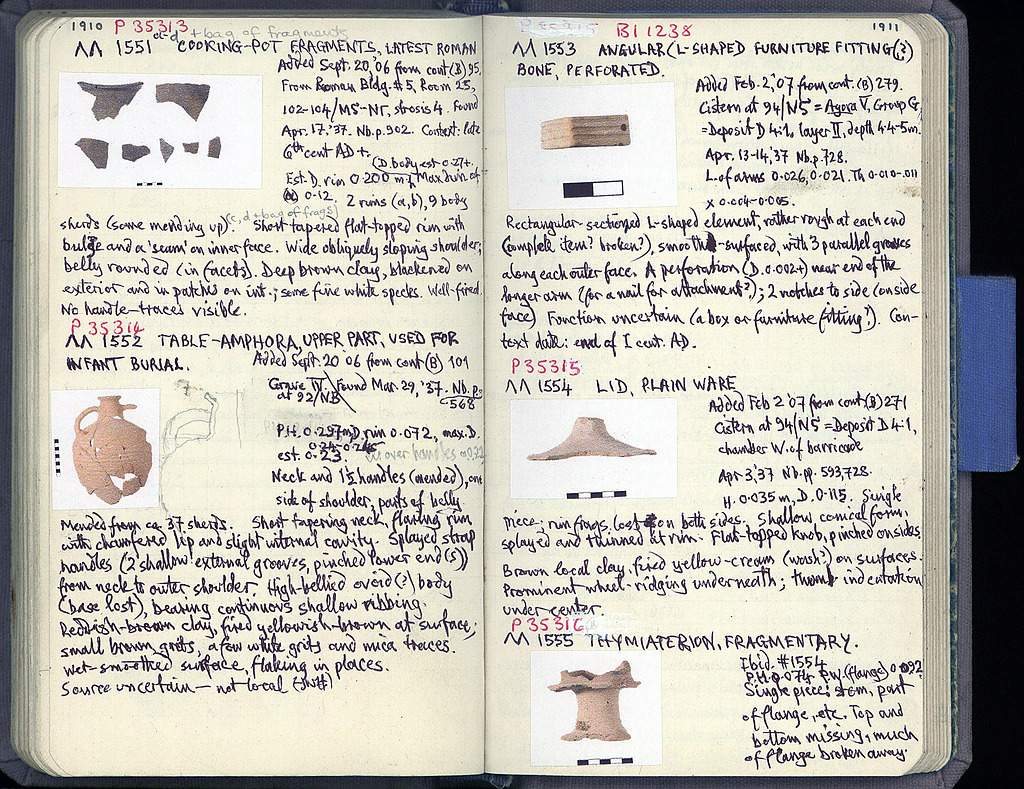 1910
P 35313
a-d + bag of fragments
ΛΛ 1551 COOKING-POT FRAGMENTS, LATEST ROMAN
Added Sept. 20 '06 from cont (B) 95.
From Roman Bldg. #5, Room 25,
102-104/MS-NT, strosis 4. Found
Apr. 17 '37. Nb. p. 902. Context: late
6th cent AD+.
(D. body est. 0.27+.
Est. D. rim 0.200 m; Max dim of
0.12. 2 rims (a,b), 9 body
(c, d + bag of frags)
sherds (some mending up). Short tapered flat-topped rim with
bulge and a 'seam' on inner face. Wide obliquely sloping shoulder;
belly rounded (in facets). Deep brown clay, blackened on
exterior and in patches on int.; some fine white specks. Well-fired.
No handle-traces visible.
P 35314
ΛΛ 1552 TABLE-AMPHORA, UPPER PART, USED FOR
INFANT BURIAL.
Added Sept. 20 '06 from cont (B) 101
Grave IV. Found Mar. 29, '37. Nb. p.
at 92/NB 568
P.H. 0.297 m D. rim 0.072, max. D.
est. 0.23. over handles
Neck and 1½ handles (mended), one
side of shoulder, parts of belly.
Mended from ca. 37 sherds. Short tapering neck, flaring rim
with chamfered lip and slight internal cavity. Splayed strap
handles (2 shallow external grooves, pinched lower end(s))
from neck to outer shoulder. High-bellied ovoid (?) body
(base lost), bearing continuous shallow ribbing.
Reddish-brown clay, fired yellowish-brown at surface;
small brown grits, a few white grits and mica traces.
Wet-smoothed surface, flaking in places.
Source uncertain — not local
1911
BI 1238
ΛΛ 1553 ANGULAR (L-SHAPED FURNITURE FITTING (?)
BONE, PERFORATED.
Added Feb. 2, '07 from cont. (B) 279.
Cistern at 94/N5 = Agora V, Group G,
= Deposit D 4:1, layer II, depth 4.4-5m.
Apr. 13-14, '37 Nb. p. 728.
L. of arms 0.026, 0.021. Th 0.010-.011
x 0.004-0.005.
Rectangular-sectioned L-shaped element, rather rough at each end
(complete item? broken?), smooth-surfaced, with 3 parallel grooves
along each outer face. A perforation (D. 0.002+) near end of the
longer arm (for a nail for attachment?); 2 notches to side (on side
face) Function uncertain (a box or furniture fitting?). Con-
text date: end of I cent. AD.
P 35315
ΛΛ 1554 LID, PLAIN WARE
Added Feb 2 '07 from cont. (B) 271
Cistern at 94/N5 = Deposit D 4:1,
chamber W. of barricade
Apr 3, '37 Nb. pp. 593, 728.
H. 0.035 m, D. 0.115. Single
piece; rim frags. lost on both sides. Shallow conical form,
splayed and thinned at rim. Flat-topped knob, pinched on sides.
Brown local clay, fired yellow-cream (wash?) on surfaces.
Prominent wheel-ridging underneath; thumb indentation
under center.
P 35316
ΛΛ 1555 THYMIATERION, FRAGMENTARY.
Ibid. #1554
P.H. 0.074 p.w. (flange) 0.092
Single piece: stem, part
of flange, etc. Top and
bottom missing, much
of flange broken away.